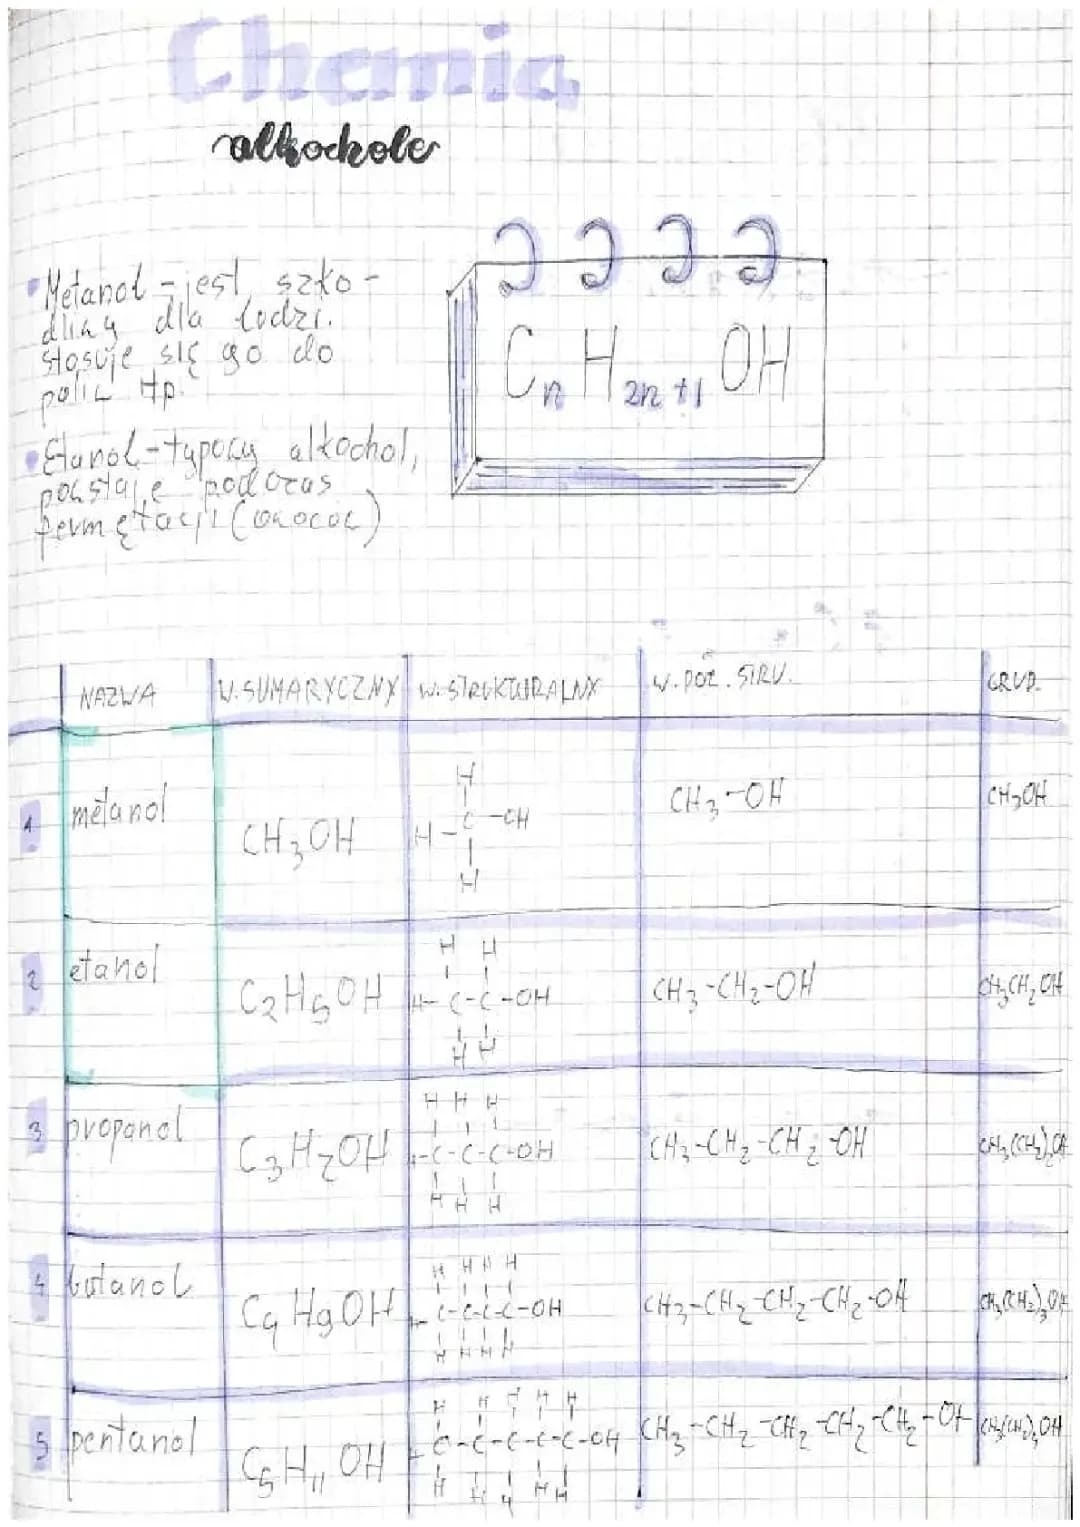 Chemia
alkochole
• Metanol - jest szko-
dliwy dla ludzi.
stosuje się go do
paliw np.
• Etanol - typowy alkochol,
powstaje podczas
fermętacji (owoców)
CnH2n+1OH
NAZWA W.SUMARYCZNY W.STRUKTURALNY W.PÓŁ.STRU. GRUP.
H
1 metanol CH3OH H-C-OH CH3-OH CH3OH
H
H H
2 etanol C2H5OH H-C-C-OH CH3-CH2-OH CH3CH2OH
H H
H H H
3 propanol C3H7OH -C-C-C-OH CH3-CH2-CH2-OH CH3(CH2)2OH
H H H
H H H H
4 butanol C4H9OH -C-C-C-C-OH CH3-CH2-CH2-CH2-OH CH3(CH2)3OH
H H H H
H H H H H
5 pentanol C5H11OH -C-C-C-C-C-OH CH3-CH2-CH2-CH2-CH2-OH CH3(CH2)4OH
H H H H H